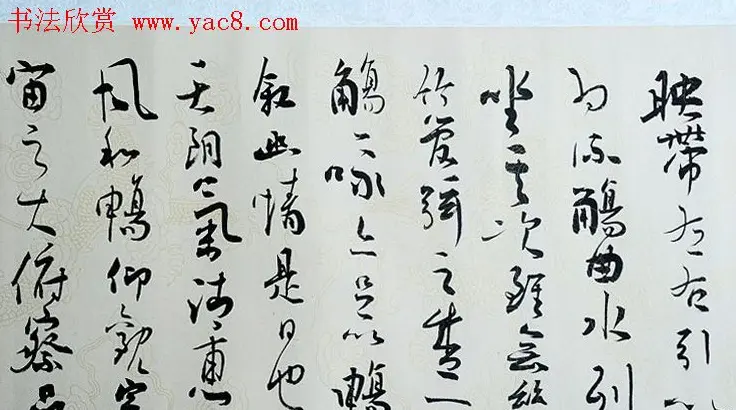 书法欣赏 www.yac8.com
映帶左右引以
為流觴曲水列
坐其次雖無絲
竹管弦之盛一
觴一咏亦足以暢
叙幽情是日也
天朗氣清惠
風和暢仰觀宇
宙之大俯察品